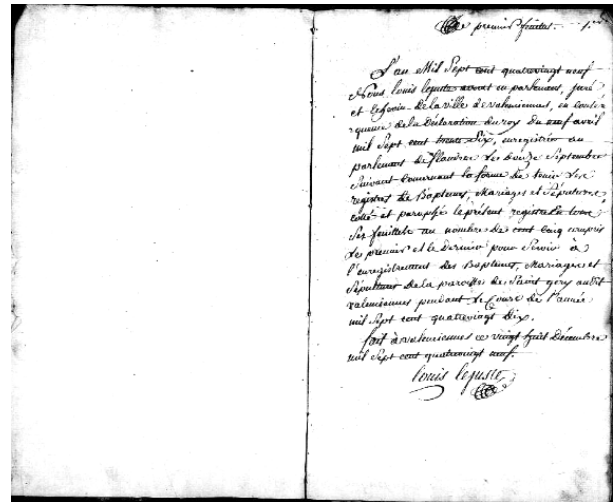 premier feuillet. 1.er
L'an Mil Sept cent quatrevingt neuf
Nous louis lejuste avocat en parlement, juré
et Echevin de la ville de valenciennes, en conse=
quence de la Déclaration du roy du neuf avril
mil Sept cent trente Six, enregistrée au
parlement de flandres le douze Septembre
Suivant concernant la forme de tenir les
registres de Baptemes, Mariages et Sépultures,
cotté et paraphé le présent registre en tous
Ses feuillets au nombre de cent cinq compris
le premier et le Dernier pour Servir à
l'enregistrement des Baptemes, Mariages et
Sépultures de la paroisse de Saint gery audit
valenciennes pendant le Cours de l'année
mil Sept cent quatrevingt Dix.
fait à valenciennes ce vingt huit Décembre
mil Sept cent quatrevingt neuf.
louis lejuste